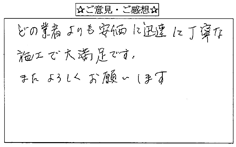 ☆ご意見・ご感想☆
どの業者よりも安価に迅速に丁寧な
施工で大満足です。
またよろしくお願いします